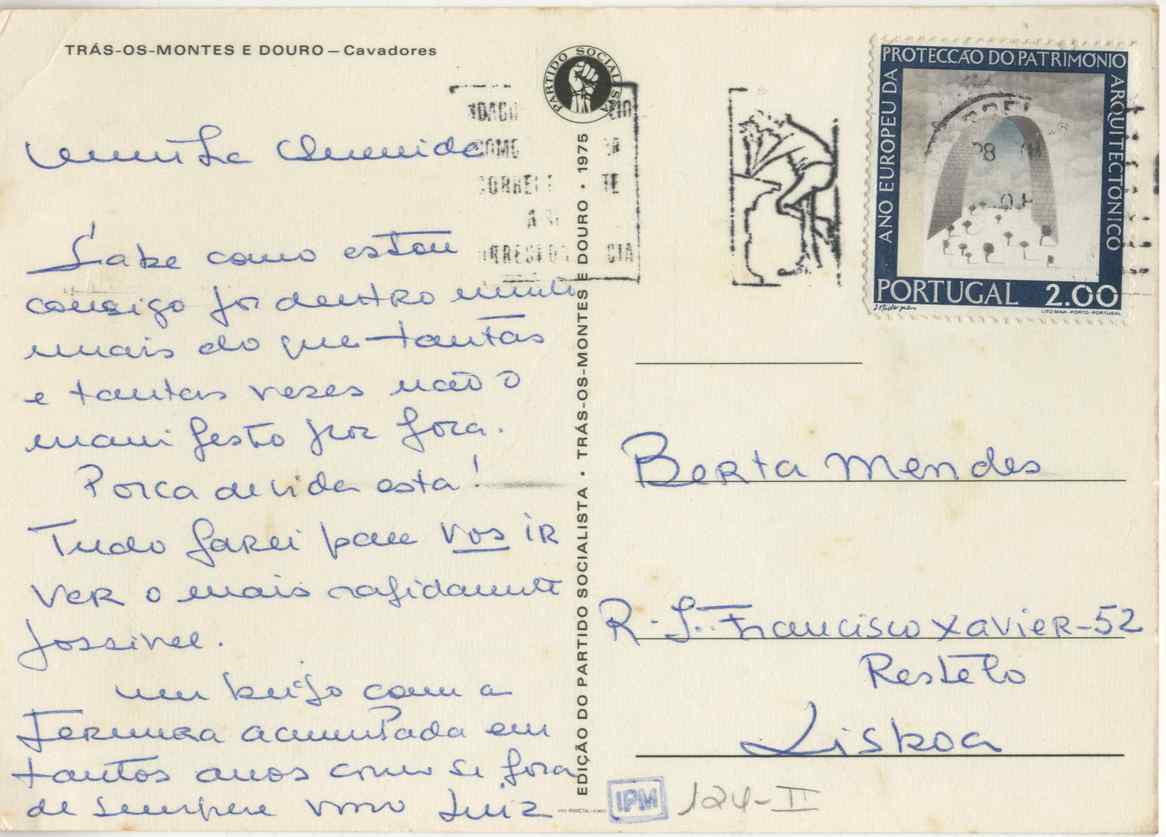 TRÁS-OS-MONTES E DOURO – Cavadores
PARTIDO SOCIALISTA
Querida
Sabe como estou
consigo por dentro muito
mais do que tantas
e tantas vezes não o
manifesto por fora.
Porca de vida esta!
Tudo farei para vos ir
ver o mais rapidamente
possivel.
um beijo com a
ternura acumulada em
tantos anos como se fora
de sempre Luiz
EDIÇÃO DO PARTIDO SOCIALISTA • TRÁS-OS-MONTES E DOURO • 1975
COMO
A
ANO EUROPEU DA PROTECÇÃO DO PATRIMONIO ARQUITECTÓNICO
PORTUGAL 2.00
LITO MAIA-PORTO-PORTUGAL
Berta Mendes
R. S. Francisco Xavier-52
Restelo
Lisboa
IPM
124-II